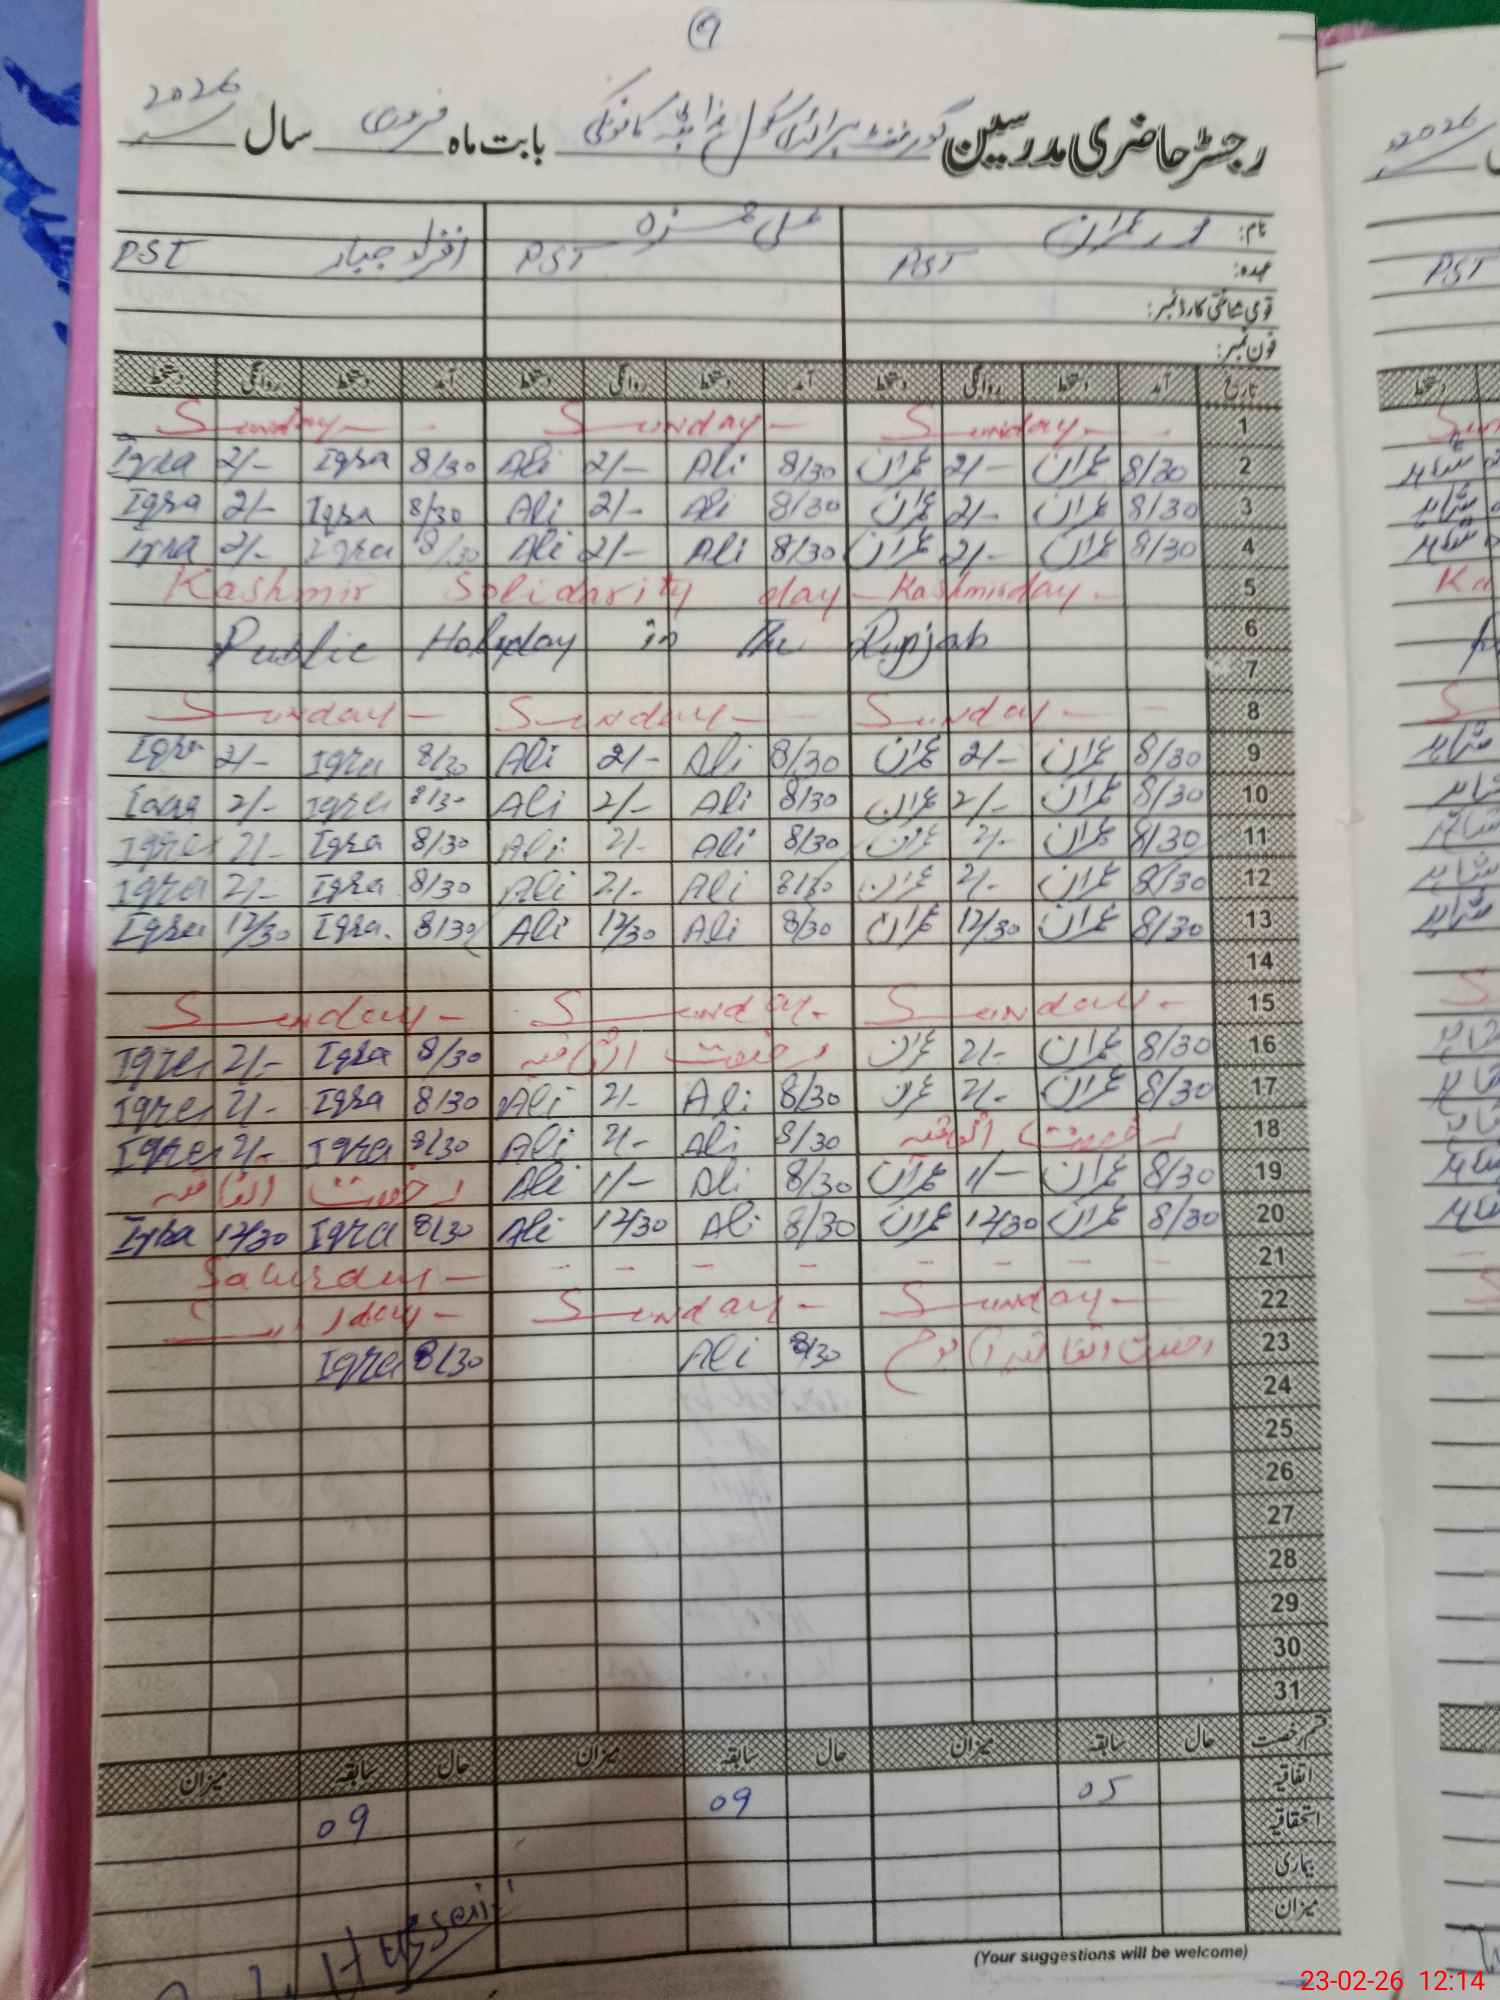 9
رجسٹر حاضری مدرسین گورنمنٹ پرائمری سکول بابت ماہ فروری سال 2026
نام: عمران علی حمزہ اقراء جبار
عہدہ: PST PST PST
قومی شناختی کارڈ نمبر:
فون نمبر:
تاریخ آمد دستخط روانگی دستخط آمد دستخط روانگی دستخط آمد دستخط روانگی دستخط
1 Sunday Sunday Sunday
2 8/30 عمران 2/- عمران 8/30 Ali 2/- Ali 8/30 Iqra 2/- Iqra
3 8/30 عمران 2/- عمران 8/30 Ali 2/- Ali 8/30 Iqra 2/- Iqra
4 8/30 عمران 2/- عمران 8/30 Ali 2/- Ali 8/30 Iqra 2/- Iqra
5 Kashmir Solidarity day - Kashmir day -
6 Public Holiday in the Punjab
7
8 Sunday - Sunday - Sunday -
9 8/30 عمران 2/- عمران 8/30 Ali 2/- Ali 8/30 Iqra 2/- Iqra
10 8/30 عمران 2/- عمران 8/30 Ali 2/- Ali 8/30 Iqra 2/- Iqra
11 8/30 عمران 2/- عمران 8/30 Ali 2/- Ali 8/30 Iqra 2/- Iqra
12 8/30 عمران 2/- عمران 8/30 Ali 2/- Ali 8/30 Iqra 2/- Iqra
13 8/30 عمران 12/30 عمران 8/30 Ali 12/30 Ali 8/30 Iqra 12/30 Iqra
14
15 Sunday - Sunday - Sunday -
16 8/30 عمران 2/- عمران رخصت اتفاقیہ 8/30 Iqra 2/- Iqra
17 8/30 عمران 2/- عمران 8/30 Ali 2/- Ali 8/30 Iqra 2/- Iqra
18 رخصت اتفاقیہ 8/30 Ali 2/- Ali 8/30 Iqra 2/- Iqra
19 8/30 عمران 1/- عمران 8/30 Ali 1/- Ali رخصت اتفاقیہ
20 8/30 عمران 12/30 عمران 8/30 Ali 12/30 Ali 8/30 Iqra 12/30 Iqra
21 Saturday - - - - - - - - -
22 Sunday - Sunday - Sunday -
23 رخصت اتفاقیہ 8/30 Ali 8/30 Iqra
24
25
26
27
28
29
30
31
قسم رخصت حال سابقہ میزان حال سابقہ میزان حال سابقہ میزان
اتفاقیہ 05 09 09
استحقاقیہ
بیماری
میزان
(Your suggestions will be welcome)
23-02-26 12:14